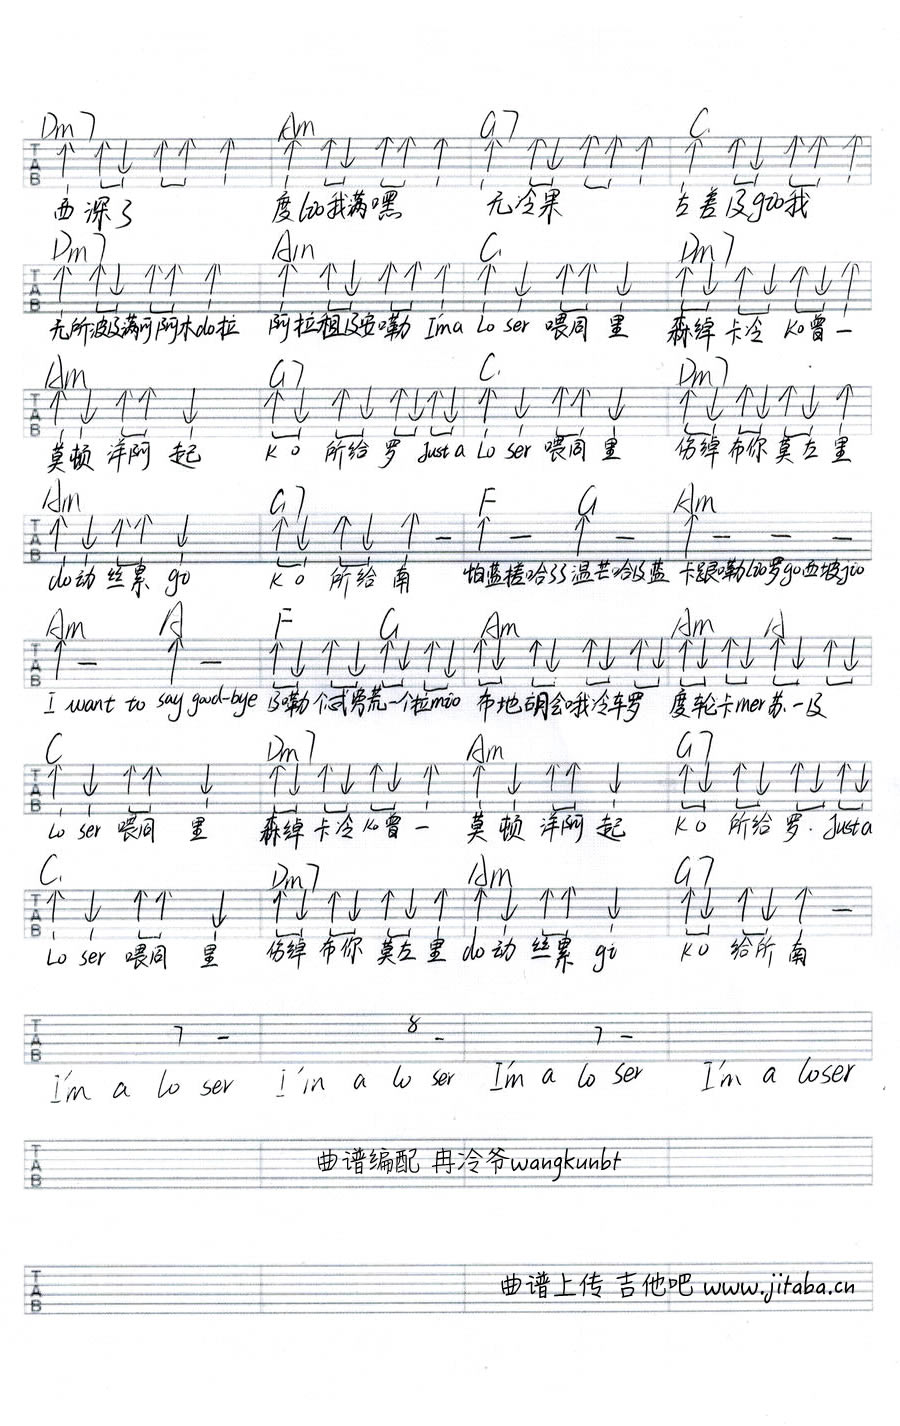 Dm7 Am G7 C
西深了 度lio我满嘿 无冷果 古差及gio我
Dm7 Am C Dm7
无所波及满阿阿木do拉 阿拉祖及安嘞 I'm a Lo ser 喂同 里 森绰 卡冷 Ko曾一
Am G7 C Dm7
莫顿 洋阿 起 K O 所给 罗 Just a Lo ser 喂同 里 伤绰 布你 莫左 里
Am G7 F G Am
do动 丝累 gi K O 所给 南 怕蓝搓哈 温芒哈及蓝 卡跟嘞lio罗go西坡gio
Am A F G Am Am A
I want to say good-bye 及嘞个 荒一个拉mio 布地胡会哦冷车罗 度轮卡mer苏一及
C Dm7 Am G7
Lo ser 喂同 里 森绰 卡冷 Ko曾 一 莫 顿 洋阿 起 K O 所给 罗. Just a
C Dm7 Am G7
Lo ser 喂同 里 伤绰 布你 莫左 里 do动 丝累 gi K O 给所 南
TAB 7 8 7
I'm a lo ser I'm a lo ser I'm a lo ser I'm a loser
TAB 曲谱编配 冉冷爷wangkunbt
TAB 曲谱上传 吉他吧 www.jitaba.cn